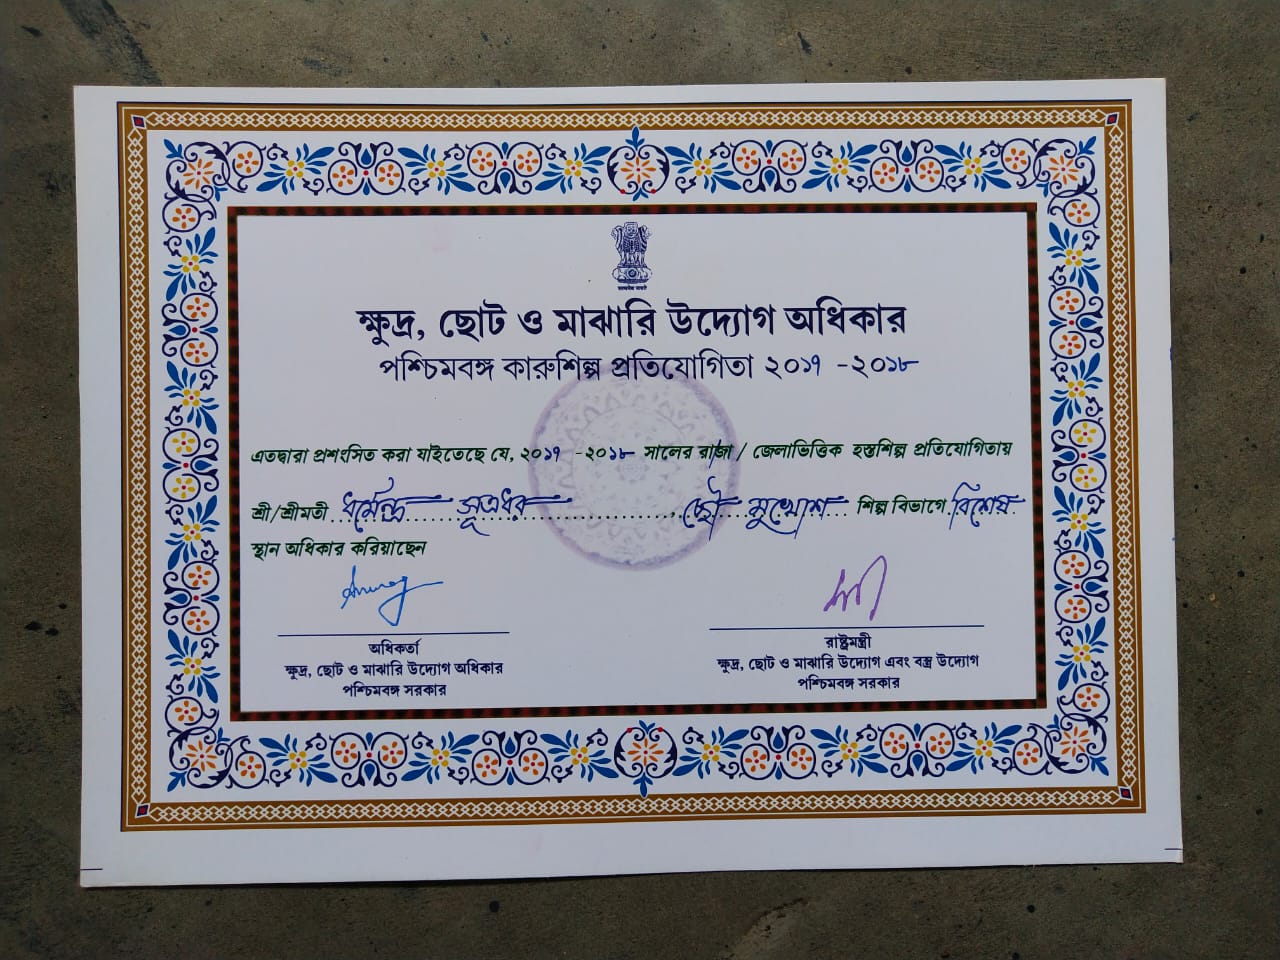 ক্ষুদ্র, ছোট ও মাঝারি উদ্যোগ অধিকার
পশ্চিমবঙ্গ কারুশিল্প প্রতিযোগিতা ২০১৭ -২০১৮
এতদ্বারা প্রশংসিত করা যাইতেছে যে, ২০১৭ -২০১৮ সালের রাজ্য / জেলাভিত্তিক হস্তশিল্প প্রতিযোগিতায়
শ্রী/শ্রীমতী ধর্মেন্দ্র সূত্রধর ছৌ মুখোশ শিল্প বিভাগে বিশেষ
স্থান অধিকার করিয়াছেন
অধিকর্তা
ক্ষুদ্র, ছোট ও মাঝারি উদ্যোগ অধিকার
পশ্চিমবঙ্গ সরকার
রাষ্ট্রমন্ত্রী
ক্ষুদ্র, ছোট ও মাঝারি উদ্যোগ এবং বস্ত্র উদ্যোগ
পশ্চিমবঙ্গ সরকার